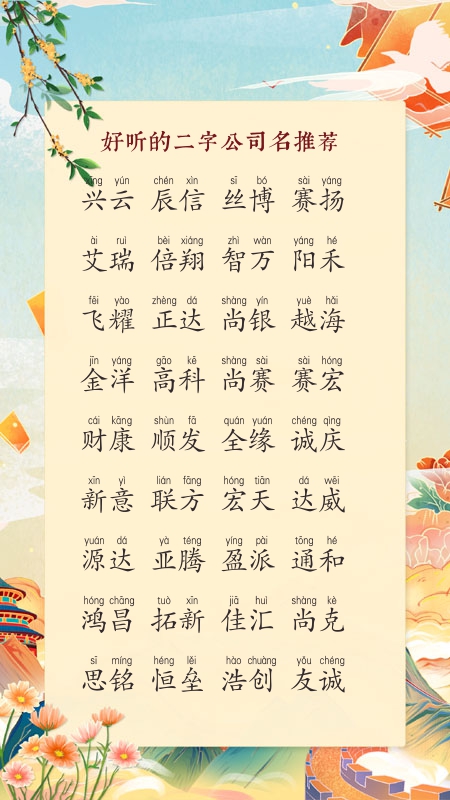 好听的二字公司名推荐
xīng yún chén xìn sī bó sài yáng
兴云 辰信 丝博 赛扬
ài ruì bèi xiáng zhì wàn yáng hé
艾瑞 倍翔 智万 阳禾
fēi yào zhèng dá shàng yín yuè hǎi
飞耀 正达 尚银 越海
jīn yáng gāo kē shàng sài sài hóng
金洋 高科 尚赛 赛宏
cái kāng shùn fā quán yuán chéng qìng
财康 顺发 全缘 诚庆
xīn yì lián fāng hóng tiān dá wēi
新意 联方 宏天 达威
yuán dá yà téng yíng pài tōng hé
源达 亚腾 盈派 通和
hóng chāng tuò xīn jiā huì shàng kè
鸿昌 拓新 佳汇 尚克
sī míng héng lěi hào chuàng yǒu chéng
思铭 恒垒 浩创 友诚